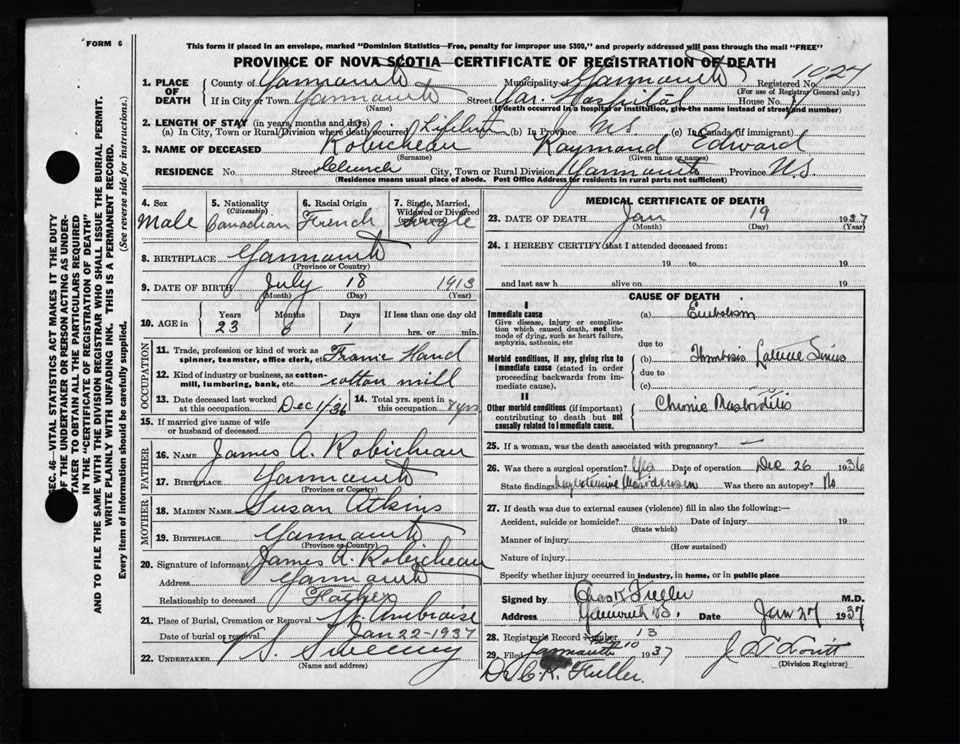 FORM 6
This form if placed in an envelope, marked "Dominion Statistics—Free, penalty for improper use $300," and properly addressed will pass through the mail "FREE"
PROVINCE OF NOVA SCOTIA—CERTIFICATE OF REGISTRATION OF DEATH
1. PLACE OF DEATH County of Yarmouth Municipality of Yarmouth Registered No. 1027
(For use of Registrar General only)
If in City or Town Yarmouth Street Hospital House No.
(Name) (If death occurred in a hospital or institution, give the name instead of street and number)
2. LENGTH OF STAY (in years, months and days)
(a) In City, Town or Rural Division where death occurred Lifetime (b) In Province N.S. (c) In Canada (if immigrant)
3. NAME OF DECEASED Robicheau Raymond Edward
(Surname) (Given name or names)
RESIDENCE No. Street Church City, Town or Rural Division Yarmouth Province N.S.
(Residence means usual place of abode. Post Office Address for residents in rural parts not sufficient)
4. Sex 5. Nationality (Citizenship) 6. Racial Origin 7. Single, Married, Widowed or Divorced
Male Canadian French Single
8. BIRTHPLACE Yarmouth
(Province or Country)
9. DATE OF BIRTH July 18 1913
(Month) (Day) (Year)
10. AGE in Years Months Days If less than one day old
23 6 1 hrs. or min.
OCCUPATION
11. Trade, profession or kind of work as spinner, teamster, office clerk, etc. Frame Hand
12. Kind of industry or business, as cotton-mill, lumbering, bank, etc. cotton mill
13. Date deceased last worked at this occupation Dec 1/36 14. Total yrs. spent in this occupation 8 yrs
15. If married give name of wife or husband of deceased
FATHER
16. NAME James A. Robicheau
17. BIRTHPLACE Yarmouth
(Province or Country)
MOTHER
18. MAIDEN NAME Susan Atkins
19. BIRTHPLACE Yarmouth
(Province or Country)
20. Signature of informant James A. Robicheau
Address Yarmouth
Relationship to deceased Father
21. Place of Burial, Cremation or Removal St. Ambroise
Date of burial or removal Jan 22-1937
22. UNDERTAKER V S. Sweeney
(Name and address)
MEDICAL CERTIFICATE OF DEATH
23. DATE OF DEATH Jan 19 1937
(Month) (Day) (Year)
24. I HEREBY CERTIFY that I attended deceased from:
19 to 19
and last saw h alive on 19
CAUSE OF DEATH
I
Immediate cause (a) Embolism
Give disease, injury or complication which caused death, not the mode of dying, such as heart failure, asphyxia, asthenia, etc
due to
Morbid conditions, if any, giving rise to immediate cause (stated in order proceeding backwards from immediate cause). (b) Thrombosis Lateral Sinus
due to
(c)
II
Other morbid conditions (if important) contributing to death but not causally related to immediate cause. Chronic Mastoiditis
25. If a woman, was the death associated with pregnancy? —
26. Was there a surgical operation? Yes Date of operation Dec 26 1936
State findings Was there an autopsy? No
27. If death was due to external causes (violence) fill in also the following:—
Accident, suicide or homicide? Date of injury 19
(State which)
Manner of injury
(How sustained)
Nature of injury
Specify whether injury occurred in industry, in home, or in public place
Signed by Chas K Fuller M.D.
Address Yarmouth N.S. Date Jan 27 1937
28. Registrar's Record Number 13
29. Filed 10 1937
(Division Registrar)
Dr. C. K. Fuller.
SEC. 46—VITAL STATISTICS ACT MAKES IT THE DUTY
OF THE UNDERTAKER OR PERSON ACTING AS UNDERTAKER TO OBTAIN ALL THE PARTICULARS REQUIRED
IN THE "CERTIFICATE OF REGISTRATION OF DEATH"
AND TO FILE THE SAME WITH THE DIVISION REGISTRAR WHO SHALL ISSUE THE BURIAL PERMIT.
WRITE PLAINLY WITH UNFADING INK. THIS IS A PERMANENT RECORD.
Every item of information should be carefully supplied. (See reverse side for instructions.)